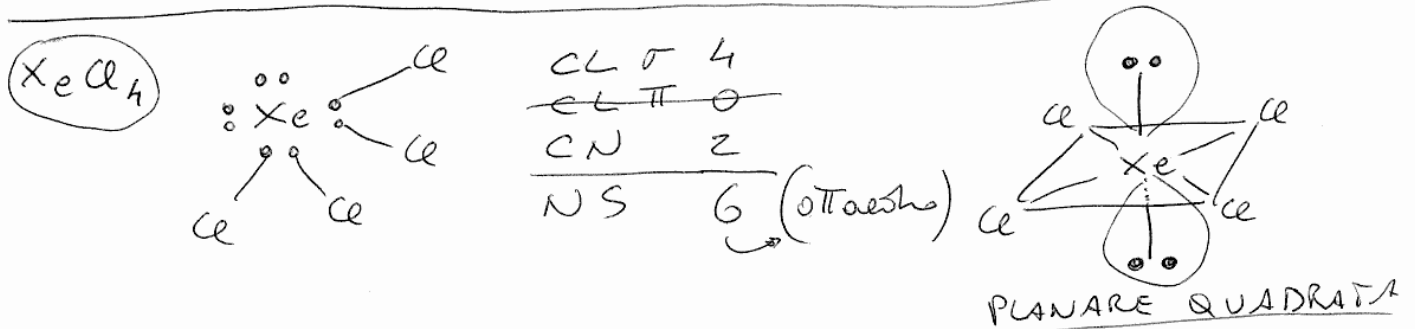 XeCl4
Xe
Cl
Cl
Cl
Cl
CL σ 4
CL π 0
CN 2
NS 6 (ottaedro)
Cl
Cl
Xe
Cl
Cl
PLANARE QUADRATA